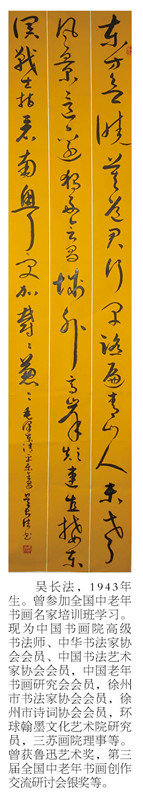 东方欲晓莫道君行早踏遍青山人未老
风景这边独好会昌城外高峰颠连直接东
溟战士指看南粤更加郁々葱々 毛泽东清平乐会昌 吴长法书
吴长法，1943年
生。曾参加全国中老年
书画名家培训班学习。
现为中国书画院高级
书法师、中华书法家协
会会员、中国书法艺术
家协会会员，中国老年
书画研究会会员，徐州
市书法家协会会员，徐
州市诗词协会会员，环
球翰墨文化艺术院研究
员，三苏画院理事等。
曾获鲁迅艺术奖，第三
届全国中老年书画创作
交流研讨会银奖等。